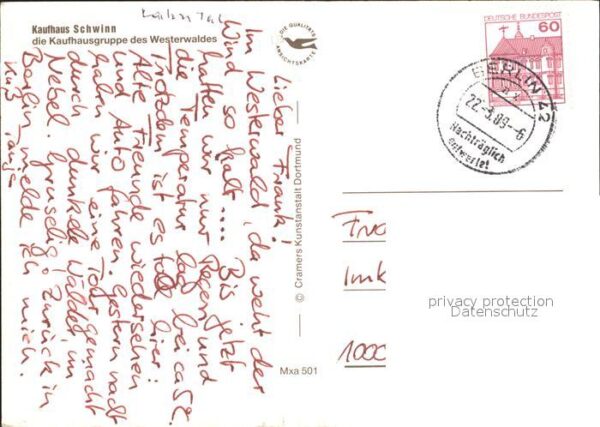 Kaufhaus Schwinn
die Kaufhausgruppe des Westerwaldes
DIE QUALITÄTS
ANSICHTSKARTE
Lieber Frank!
Im Westerwald, da weht der
Wind so kalt..... Bis jetzt
hatten wir nur Regen und
die Temperatur lag bei ca 5°C.
Trotzdem ist es toll hier:
Alte Freunde wiedersehen
und Auto fahren. Gestern nacht
haben wir eine Tour gemacht
durch dunkele Wälder im
Nebel. Gruselig. Zurück in
Berlin melde ich mich.
Kuß
© Cramers Kunstanstalt Dortmund
Mxa 501
DEUTSCHE BUNDESPOST
60
BERLIN 42
22.-3.89-6
Nachträglich
entwertet
Imk
1000
privacy protection
Datenschutz